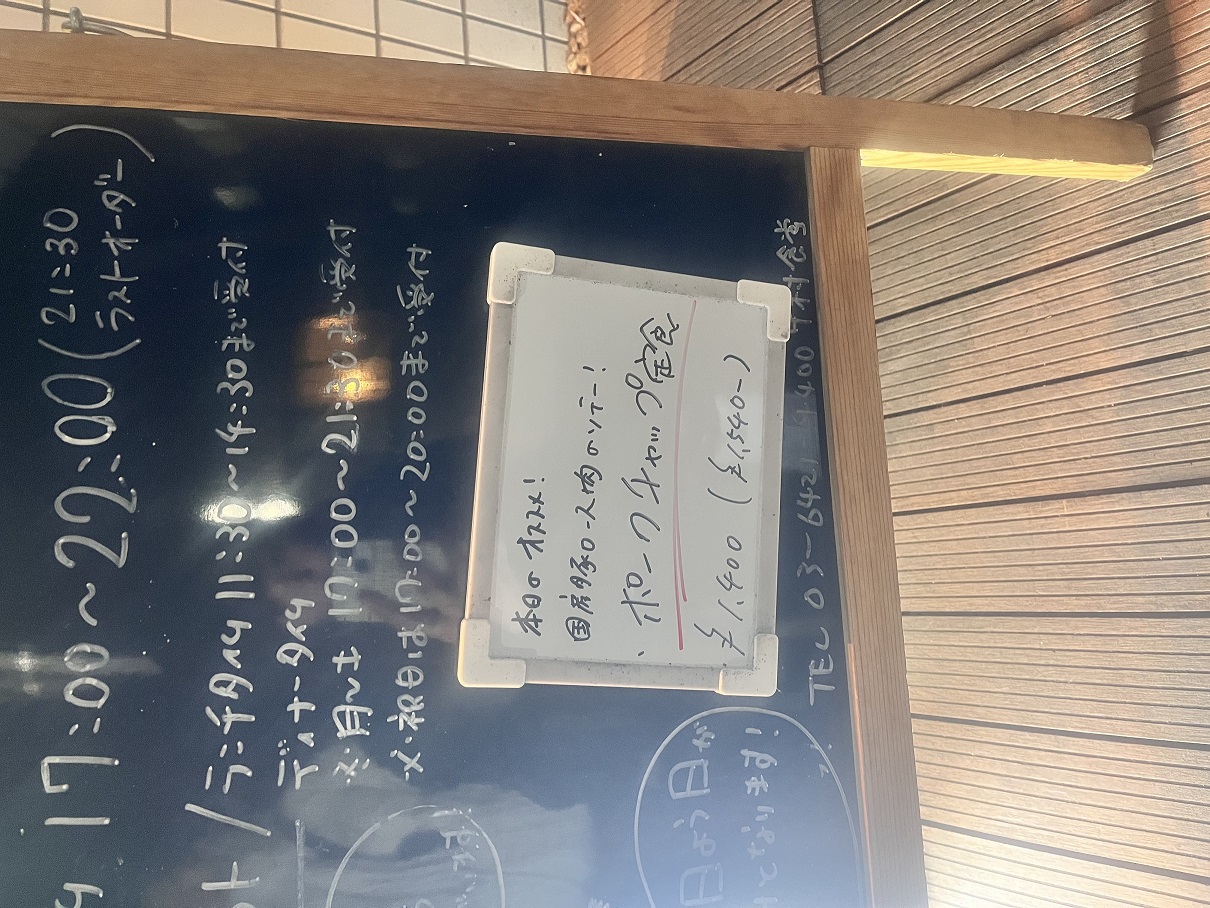 17:00～22:00(21:30
ラストオーダー)
ト/ランチタイム 11:30～14:30まで受付
ディナータイム
※月～土 17:00～21:30まで受付
※祝日は17:00～20:00まで受付
本日のオススメ!
国産豚ロース肉のソテー!
、ポークチャップ定食
¥1,400 (¥1,540-)
日よう日が
となります!
TEL 03-6421-4400 食堂